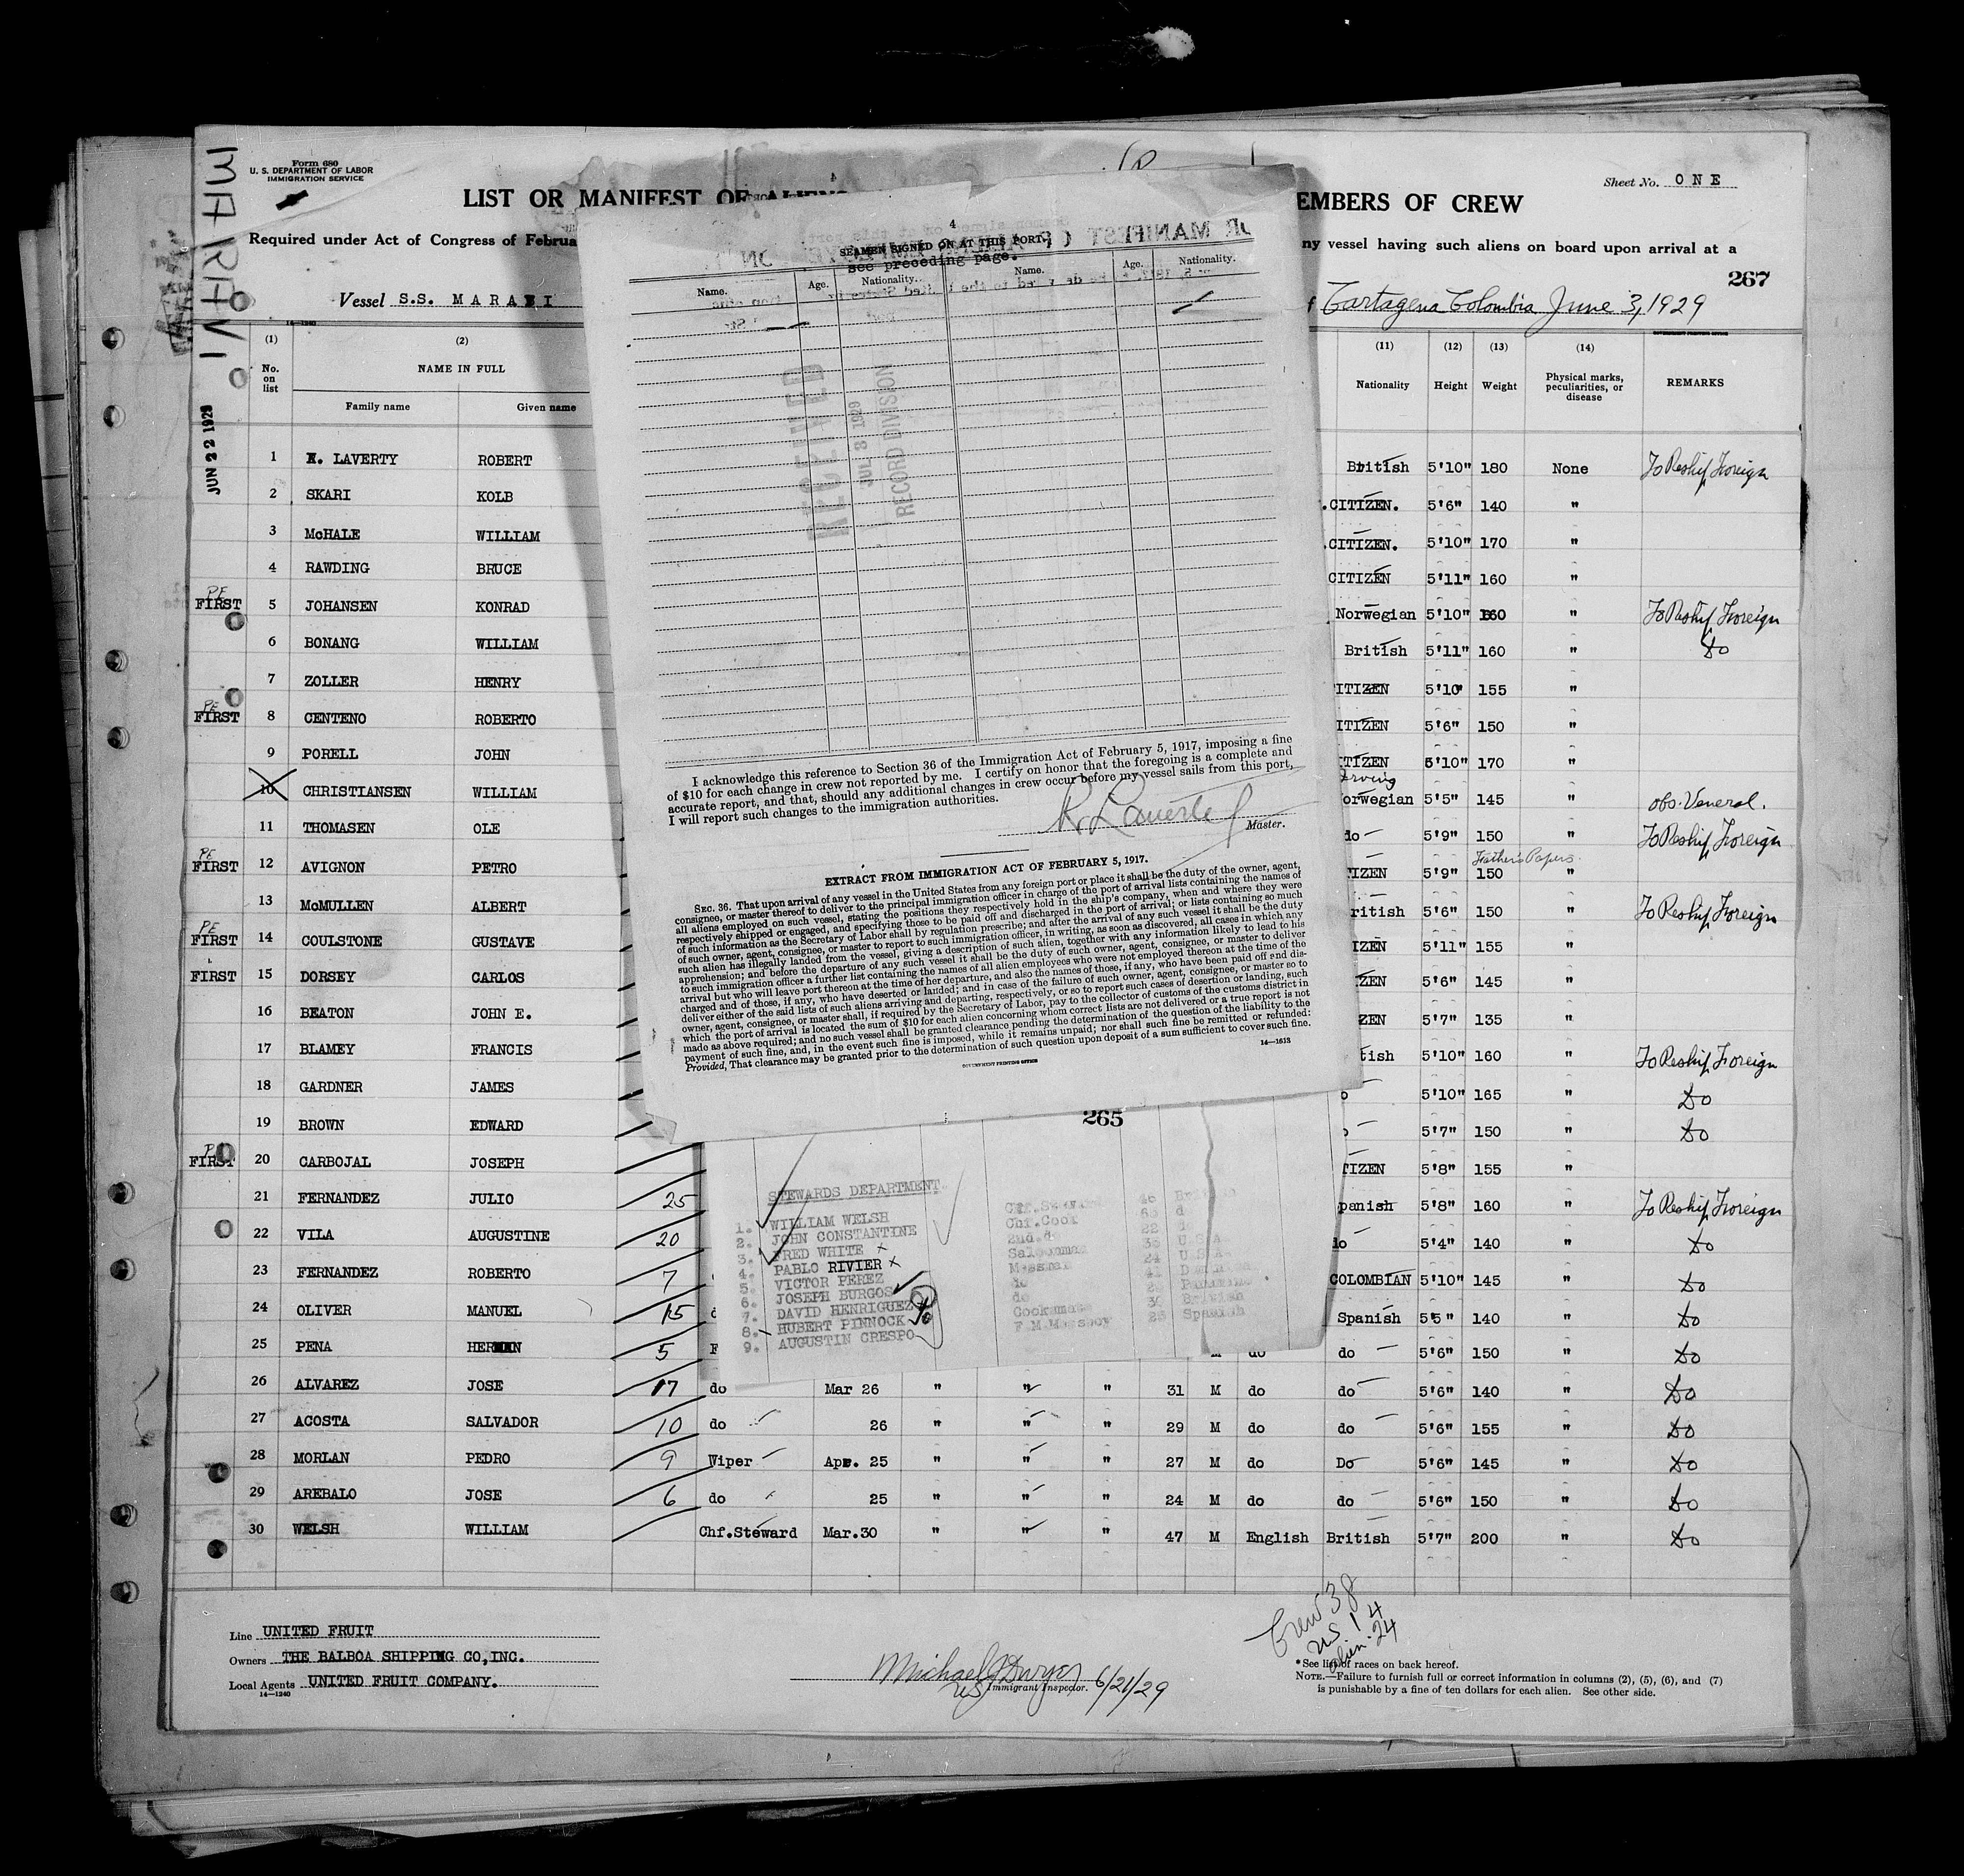 MARAVI
JUN 22 1929
Form 680
U. S. DEPARTMENT OF LABOR
IMMIGRATION SERVICE
Sheet No. ONE
LIST OR MANIFEST OF ALIENS
EMBERS OF CREW
Required under Act of Congress of Februa
ny vessel having such aliens on board upon arrival at a
267
Vessel S.S. MARAVI
Cartagena Colombia June 3, 1929
14—1240
GOVERNMENT PRINTING OFFICE
(1) (2) (11) (12) (13) (14)
No. on list NAME IN FULL Nationality Height Weight Physical marks, peculiarities, or disease REMARKS
Family name Given name
1 LAVERTY ROBERT British 5'10" 180 None To Reship Foreign
2 SKARI KOLB .CITIZEN. 5'6" 140 "
3 McHALE WILLIAM .CITIZEN. 5'10" 170 "
4 RAWDING BRUCE CITIZEN 5'11" 160 "
PE
FIRST 5 JOHANSEN KONRAD Norwegian 5'10" 160 " To Reship Foreign
6 BONANG WILLIAM British 5'11" 160 " Do
7 ZOLLER HENRY ITIZEN 5'10" 155 "
PE
FIRST 8 CENTENO ROBERTO ITIZEN 5'6" 150 "
9 PORELL JOHN TIZEN 5'10" 170 "
10 CHRISTIANSEN WILLIAM orwegian 5'5" 145 " obs. Veneral.
11 THOMASEN OLE do 5'9" 150 " To Reship Foreign
Father's Papers.
PE
FIRST 12 AVIGNON PETRO IZEN 5'9" 150 "
13 McMULLEN ALBERT ritish 5'6" 150 " To Reship Foreign
PE
FIRST 14 COULSTONE GUSTAVE IZEN 5'11" 155 "
FIRST 15 DORSEY CARLOS ZEN 5'6" 145 "
16 BEATON JOHN E. ZEN 5'7" 135 "
17 BLAMEY FRANCIS tish 5'10" 160 " To Reship Foreign
18 GARDNER JAMES o 5'10" 165 " Do
19 BROWN EDWARD o 5'7" 150 " Do
FIRST 20 CARBOJAL JOSEPH TIZEN 5'8" 155 "
21 FERNANDEZ JULIO 25 panish 5'8" 160 " To Reship Foreign
22 VILA AUGUSTINE 20 do 5'4" 140 " Do
23 FERNANDEZ ROBERTO 7 COLOMBIAN 5'10" 145 " Do
24 OLIVER MANUEL 15 Spanish 5'5" 140 " Do
25 PENA HERMAN 5 F M do do 5'6" 150 " Do
26 ALVAREZ JOSE 17 do Mar 26 " " " 31 M do do 5'6" 140 " Do
27 ACOSTA SALVADOR 10 do 26 " " " 29 M do do 5'6" 155 " Do
28 MORLAN PEDRO 9 Wiper Apr. 25 " " " 27 M do Do 5'6" 145 " Do
29 AREBALO JOSE 6 do 25 " " " 24 M do do 5'6" 150 " Do
30 WELSH WILLIAM Chf.Steward Mar.30 " " " 47 M English British 5'7" 200 " Do
4
SEAMEN SIGNED ON AT THIS PORT.
see preceding page.
Name. Age. Nationality. Name. Age. Nationality.
RECEIVED
JUL 3 1929
RECORD DIVISION
I acknowledge this reference to Section 36 of the Immigration Act of February 5, 1917, imposing a fine
of $10 for each change in crew not reported by me. I certify on honor that the foregoing is a complete and
accurate report, and that, should any additional changes in crew occur before my vessel sails from this port,
I will report such changes to the immigration authorities.
R. Laverty
Master.
EXTRACT FROM IMMIGRATION ACT OF FEBRUARY 5, 1917.
SEC. 36. That upon arrival of any vessel in the United States from any foreign port or place it shall be the duty of the owner, agent,
consignee, or master thereof to deliver to the principal immigration officer in charge of the port of arrival lists containing the names of
all aliens employed on such vessel, stating the positions they respectively hold in the ship's company, when and where they were
respectively shipped or engaged, and specifying those to be paid off and discharged in the port of arrival; or lists containing so much
of such information as the Secretary of Labor shall by regulation prescribe; and after the arrival of any such vessel it shall be the duty
of such owner, agent, consignee, or master to report to such immigration officer, in writing, as soon as discovered, all cases in which any
such alien has illegally landed from the vessel, giving a description of such alien, together with any information likely to lead to his
apprehension; and before the departure of any such vessel it shall be the duty of such owner, agent, consignee, or master to deliver
to such immigration officer a further list containing the names of all alien employees who were not employed thereon at the time of the
arrival but who will leave port thereon at the time of her departure, and also the names of those, if any, who have been paid off and dis-
charged and of those, if any, who have deserted or landed; and in case of the failure of such owner, agent, consignee, or master so to
deliver either of the said lists of such aliens arriving and departing, respectively, or so to report such cases of desertion or landing, such
owner, agent, consignee, or master shall, if required by the Secretary of Labor, pay to the collector of customs of the customs district in
which the port of arrival is located the sum of $10 for each alien concerning whom correct lists are not delivered or a true report is not
made as above required; and no such vessel shall be granted clearance pending the determination of the question of the liability to the
payment of such fine, and, in the event such fine is imposed, while it remains unpaid; nor shall such fine be remitted or refunded:
Provided, That clearance may be granted prior to the determination of such question upon deposit of a sum sufficient to cover such fine.
GOVERNMENT PRINTING OFFICE
14—1613
265
STEWARDS DEPARTMENT.
1. WILLIAM WELSH Chf.Steward 46
2. JOHN CONSTANTINE Chf.Cook
3. FRED WHITE 2nd.do 22
4. PABLO RIVIER Saloonman U.S.A.
5. VICTOR PEREZ Messman 24 U.S.A.
6. JOSEPH BURGOS do
7. DAVID HENRIGUEZ do
8. HUBERT PINNOCK Cooksmate British
9. AUGUSTIN CRESPO F.M.Messboy Spanish
Line UNITED FRUIT
Owners THE BALBOA SHIPPING CO,INC.
Local Agents UNITED FRUIT COMPANY.
14—1240
Michael J Dwyer
US Immigrant Inspector. 6/21/29
Crew 38
US. 14
Alien. 24
*See list of races on back hereof.
NOTE.—Failure to furnish full or correct information in columns (2), (5), (6), and (7)
is punishable by a fine of ten dollars for each alien. See other side.